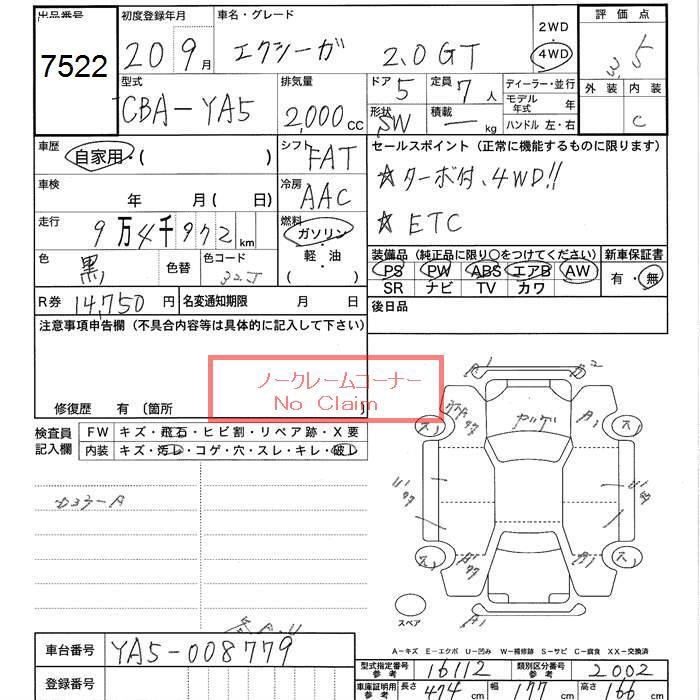 出品番号 初度登録年月 車名・グレード 2WD 評価点
7522 20 9月 エクシーガ 2.0GT 4WD 3.5
型式 排気量 ドア 定員 ディーラー・並行 外装 内装
CBA-YA5 2,000cc 5 7人 モデル年式 年
形状 積載 SW — kg ハンドル 左・右 C
車歴 自家用・( ) シフト FAT セールスポイント (正常に機能するものに限ります)
車検 年 月(日) 冷房 AAC ☆ターボ付、4WD!!
走行 9万4千972km 燃料 ガソリン・軽油・( ) ☆ETC
色 黒 色替 色コード 32J 装備品(純正品に限り〇をつけてください) 新車保証書
PS PW ABS エアB AW 有・無
SR ナビ TV カワ
R券 14,750円 名変通知期限 月 日 後日品
注意事項申告欄(不具合内容等は具体的に記入して下さい)
ノークレームコーナー
No Claim
修復歴 有〔箇所 〕
検査員記入欄 FW キズ・飛石・ヒビ割・リペア跡・X要
内装 キズ・汚レ・コゲ・穴・スレ・キレ・破レ
A1 2
A1
ス1 ス1
ヤツレ
ス1 ス1
A1
A1
スペア
A-キズ E-エクボ U-凹み W-補修跡 S-サビ C-腐食 XX-交換済
車台番号 YA5-008779
型式指定番号 参考 16112 類別区分番号 参考 2002
登録番号 車庫証明用 参考 長さ 474cm 幅 177cm 高さ 166cm